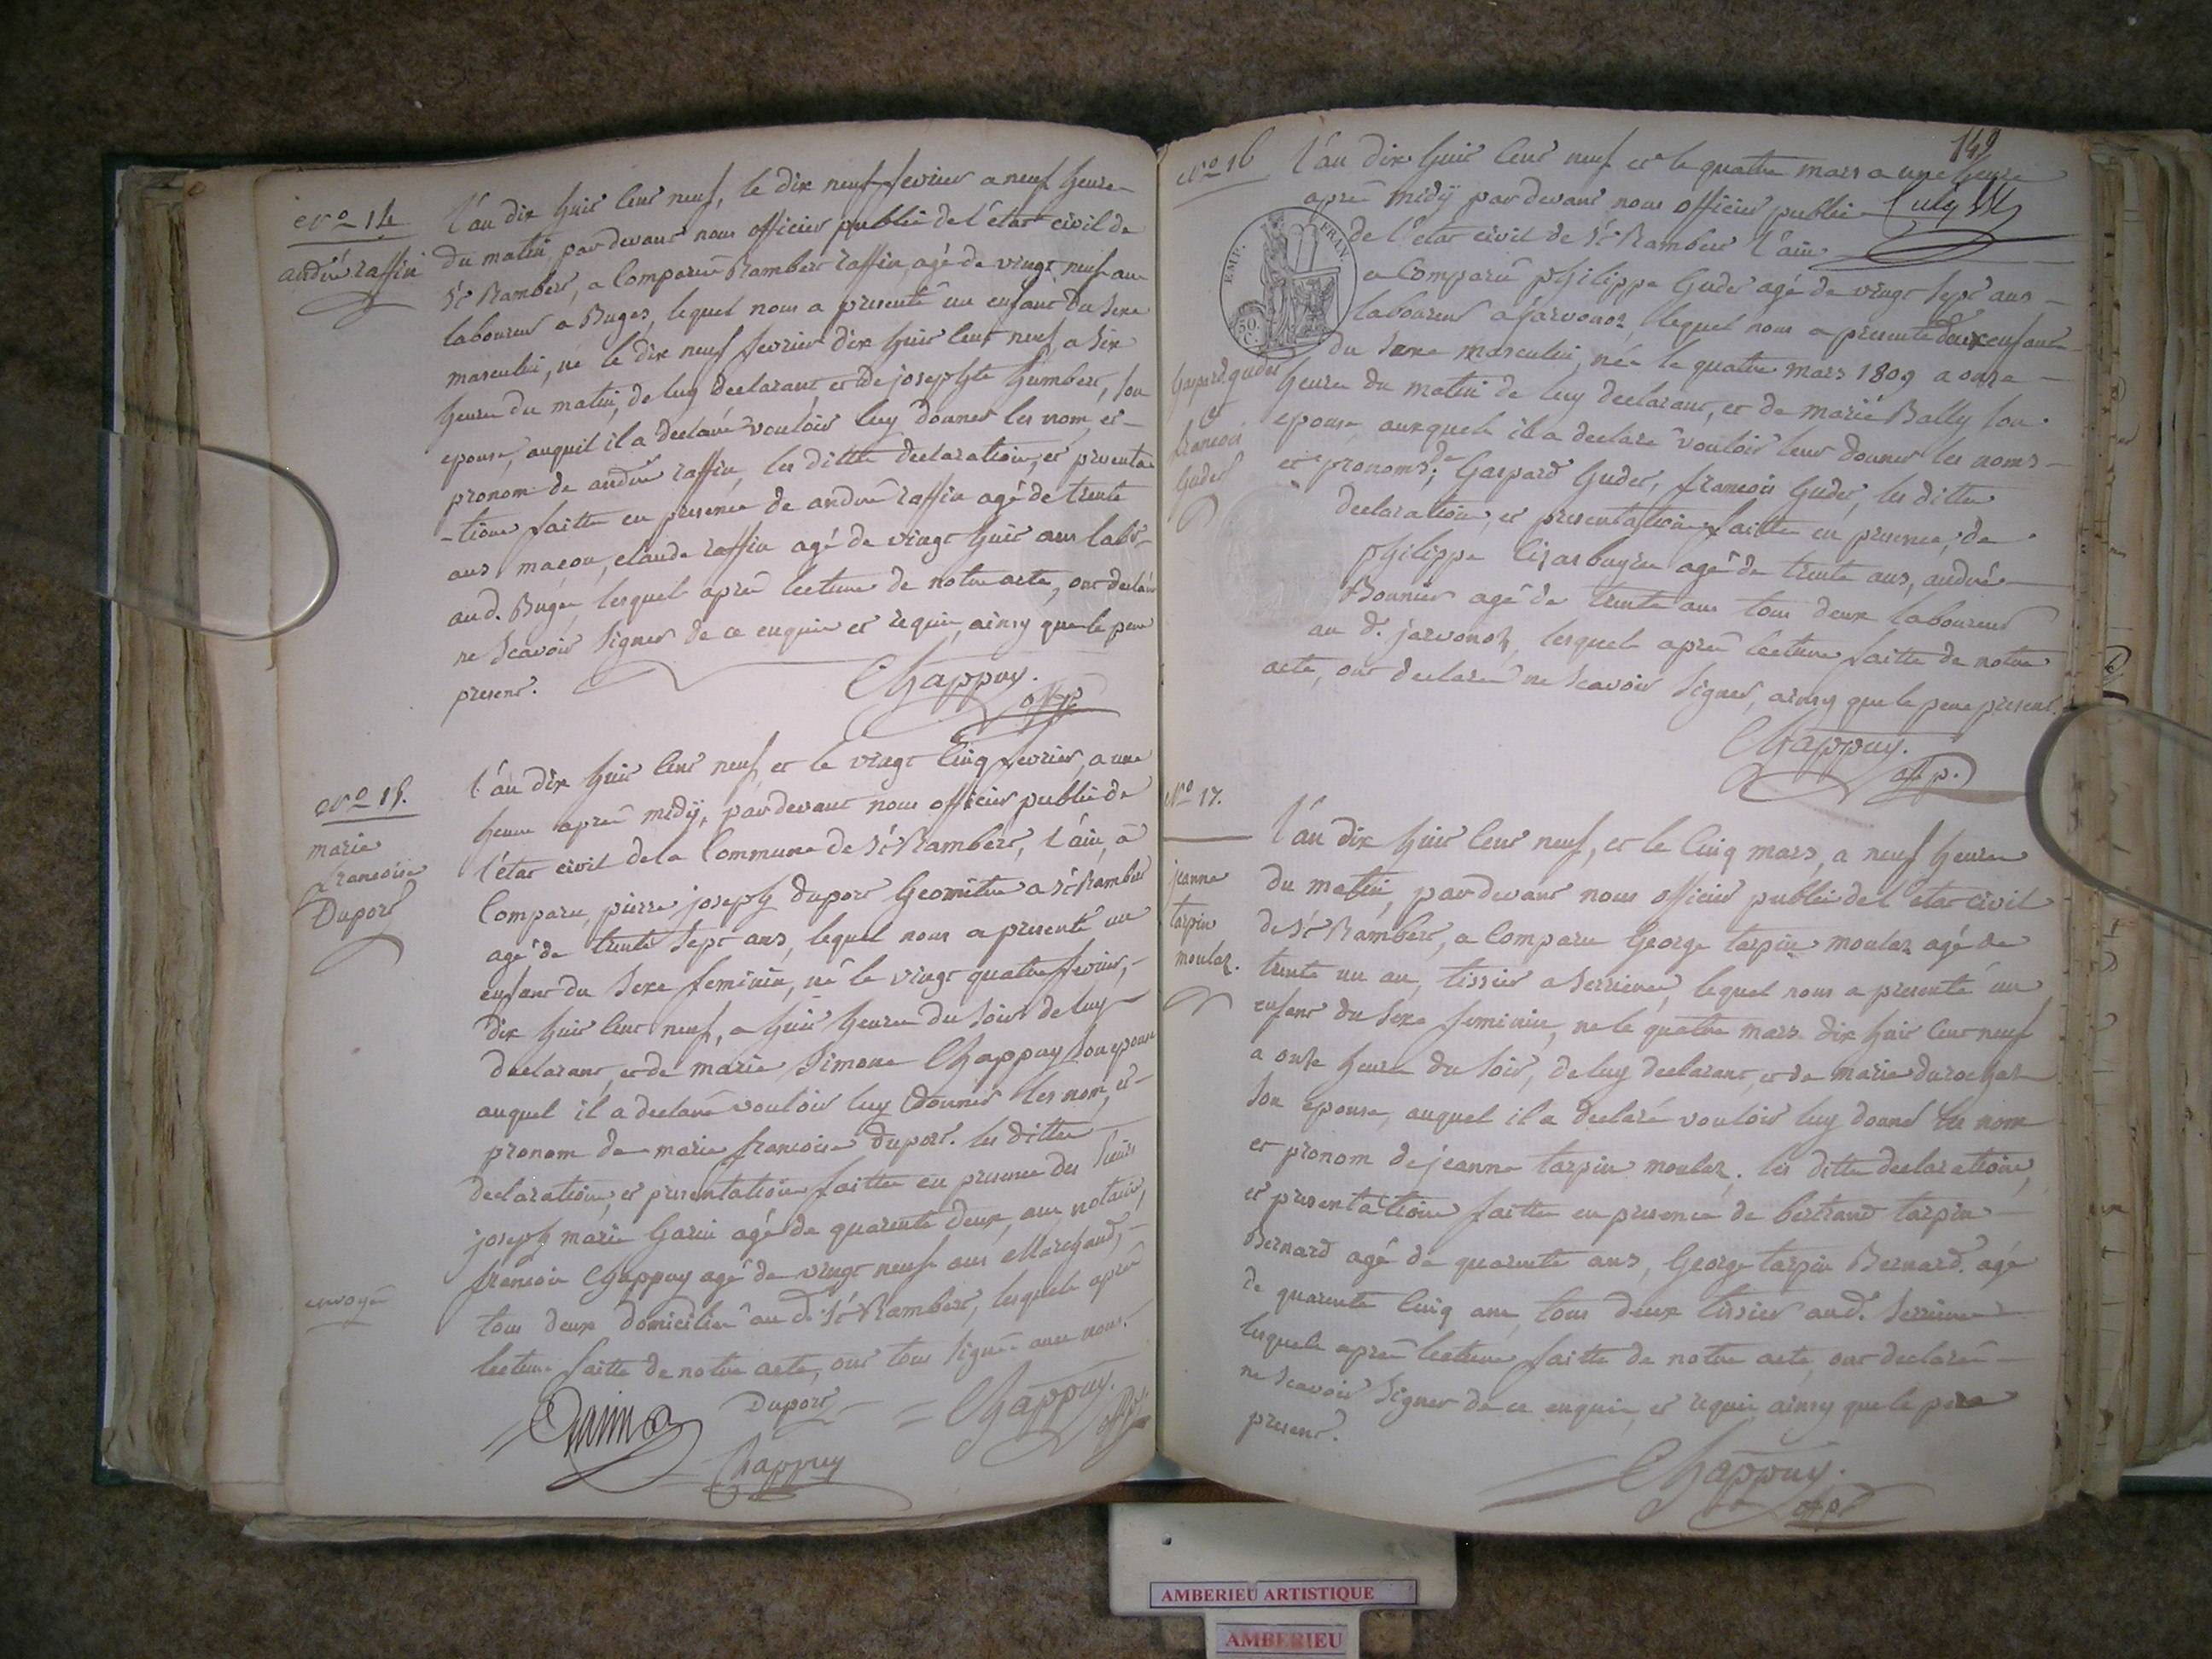 N.o 14
andré raffin
l'an dix huit cent neuf, le dix neuf fevrier a neuf heure
du matin par devant nous officier public de l'état civil de
St Rambert, a comparu Rambert raffin, agé de vingt neuf an
laboureur a Buges, lequel nous a presenté un enfant du sexe
masculin, né le dix neuf fevrier dix huit cent neuf a six
heure du matin, de luy declarant, et de josephte humbert, son
epouse, auquel il a declaré vouloir luy donner les nom, et
pronom de andré raffin, les ditte declaration, et presenta
-tions faitte en presence de andré raffin agé de trente
ans maçon, claude raffin agé de vingt huit ans labr-
aud. Buges, lesquels apres lecture de notre acte, ont declaré
ne scavoir signer de ce enquis et requis, ainsy que le pere
present.
Chappuy.
off. p.
N.o 15.
marie
francoise
Duport
envoyé
l'an dix huit cent neuf, et le vingt cinq fevrier, a une
heure apres midÿ, par devant nous officier public de
l'état civil de la Commune de St Rambert, l'ain, a
Comparu, pierre joseph duport Geomètre a St Rambert
agé de trente sept ans, lequel nous a presenté un
enfant du sexe feminin, né le vingt quatre fevrier,-
dix huit cent neuf, a huit heure du soir de luy
declarant, et de marie simone Chappuy son epouse
auquel il a declaré vouloir luy donner les nom, et-
pronom de marie francoise duport. les ditte
declaration, et presentation faitte en presence des sieurs
joseph marie Garin agé de quarante deux, ans notaire,
francois Chappuy agé de vingt neuf ans Marchand,-
tous deux domicilié au d. St Rambert, lesquels apres
lecture faitte de notre acte, ont tous signé avec nous.
Duport = Chappuy.
off. p.
Chappuy
149
N.o 16
l'an dix huit cent neuf et le quatre mars a une heure
apres midÿ par devant nous officier public
de l'état civil de St Rambert l'ain
EMP. FRAN.
50. C.
a comparu philippe Guder agé de vingt sept ans-
laboureur a jarvonoz, lequel nous a presenté deux enfant
du sexe masculin, née le quatre mars 1809 a onze-
heure du matin de luy declarant, et de marie Bally son
epouse, auxquels il a declaré vouloir leur donner les noms-
et pronoms, de Gaspard Guder, francois Guder, les ditte
declaration, et presentation faitte en presence, de
Gaspard guder
et
francois
Guder
philippe agé de trente ans, andré
Bonnier agé de trente ans tous deux laboureur
au d. jarvonoz, lesquels apres lecture faitte de notre
acte, ont declaré ne scavoir signer, ainsy que le pere present.
Chappuy.
off. p.
N.o 17.
jeanne
tarpin
moulaz.
l'an dix huit cent neuf, et le cinq mars, a neuf heure
du matin, par devant nous officier public de l'état civil
de St Rambert, a comparu George tarpin moulaz agé de
trente un an, tissier a serriere, lequel nous a presenté un
enfant du sexe feminin, né le quatre mars dix huit cent neuf
a onze heure du soir, de luy declarant, et de marie durochat
son epouse, auquel il a declaré vouloir luy donner les nom
et pronom de jeanne tarpin moulaz. les ditte declaration,
et presentation faitte en presence de bertrand tarpin-
Bernard agé de quarante ans, George tarpin Bernard. agé
de quarante cinq ans, tous deux tissier aud. serriere
lesquels apres lecture faitte de notre acte, ont declaré-
ne scavoir signer de ce enquis, et requis ainsy que le pere
present.
Chappuy.
off. p.
AMBERIEU ARTISTIQUE
AMBERIEU